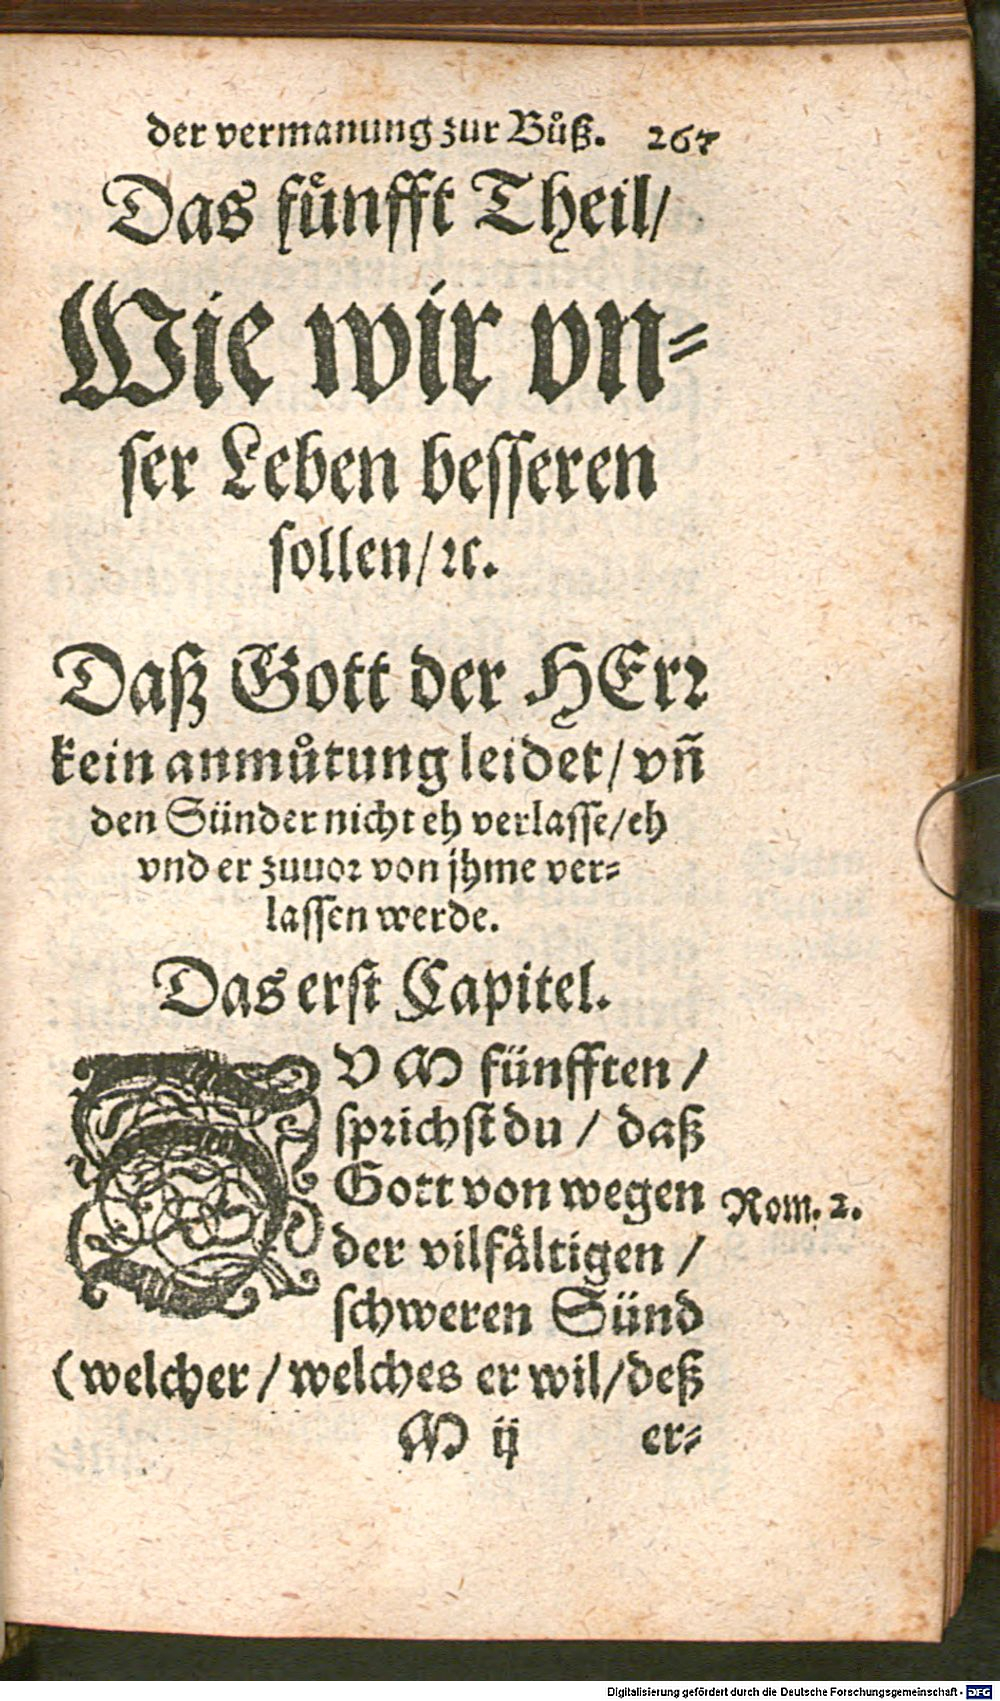 der vermanung zur Bůß. 267
Das fünfft Theil/
Wie wir vn⸗
ser Leben besseren
sollen/ ꝛc.
Daß Gott der HErꝛ
kein anmůtung leidet/ vñ
den Sünder nicht eh verlasse/ eh
vnd er zuuoꝛ von jhme ver⸗
lassen werde.
Das erst Capitel.
ZVM fünfften /
spꝛichst du / daß
Gott von wegen
der vilfältigen /
schweren Sünd
(welcher / welches er wil/ deß
Rom. 2.
M ij er⸗
Digitalisierung gefördert durch die Deutsche Forschungsgemeinschaft - DFG